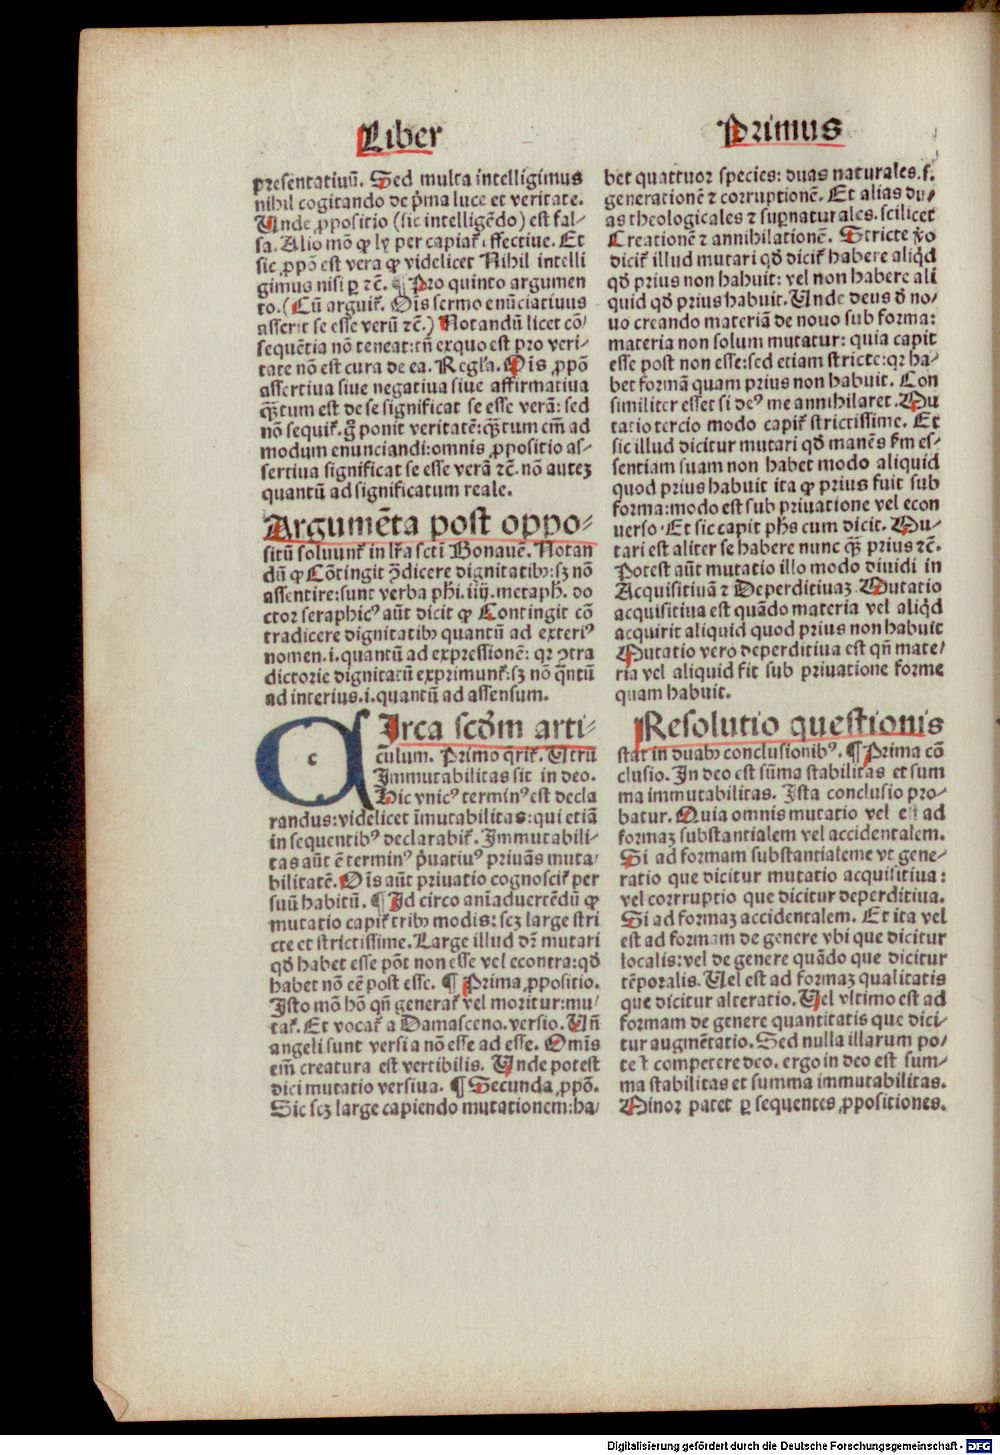 Liber
Primus
presentatiuũ. Sed multa intelligimus
nihil cogitando de p̃ma luce et veritate.
Unde ꝓpositio (sic intelligẽdo) est fal⸗
sa. Alio mõ ꝙ ly per capiat᷑ effectiue. Et
sic ꝓpõ est vera ꝙ videlicet Nihil intelli
gimus nisi ꝑ ꝛc̃. ¶ Pro quinto argumen
to. (Cũ arguit᷑. Oĩs sermo enũciatiuus
asserit se esse verũ ꝛc̃.) Notandũ licet cõ⸗
sequẽtia nõ teneat: tñ ex quo est pro veri⸗
tate nõ est cura de ea. Regl̃a. Oĩs ꝓpõ
assertiua siue negatiua siue affirmatiua
q̃ꝫtum est de se significat se esse verã: sed
nõ sequit᷑. g̊ ponit veritatẽ: q̃ꝫtum em̃ ad
modum enunciandi: omnis ꝓpositio as⸗
sertiua significat se esse verã ꝛc̃. nõ auteꝫ
quantũ ad significatum reale.
Argumẽta post oppo⸗
sitũ soluunt᷑ in lr̃a scti Bonauẽ. Notan
dũ ꝙ Cõtingit ꝯ̃dicere dignitatibꝰ: sꝫ nõ
assentire: sunt verba phi. iiij. metaph. do
ctor seraphicꝰ aũt dicit ꝙ Contingit cõ
tradicere dignitatibꝰ quantũ ad exteriꝰ
nomen. i. quantũ ad expressionẽ: qꝛ ꝯtra
dictorie dignitatũ exprimunt᷑: sꝫ nõ q̃ntũ
ad interius. i. quantũ ad assensum.
c
Irca scd̃m arti⸗
culum. Primo q̃rit᷑. Utrũ
Immutabilitas sit in deo.
Hic vnicꝰ terminꝰ est decla
randus: videlicet ĩmutabilitas: qui etiã
in sequentibꝰ declarabit᷑. Immutabili⸗
tas aũt ẽ terminꝰ p̃uatiuꝰ priuãs muta⸗
bilitatẽ. Oĩs aũt priuatio cognoscit᷑ per
suũ habitũ. ¶ Id circo aniaduertẽdũ ꝙ
mutatio capit᷑ tribꝰ modis: scꝫ large stri
cte et strictissime. Large illud dr̃ mutari
qd̃ habet esse põt non esse vel econtra: qd̃
habet nõ eẽ post esse. ¶ Prima ꝓpositio.
Isto mõ hõ qñ generat᷑ vel moritur: mu⸗
tat᷑. Et vocat᷑ a Damasceno. versio. Uñ
angeli sunt versi a nõ esse ad esse. Omĩs
em̃ creatura est vertibilis. Unde potest
dici mutatio versiua. ¶ Secunda ꝓpõ.
Sic scꝫ large capiendo mutationem: ha⸗
bet quattuor species: duas naturales. s.
generationẽ ⁊ corruptionẽ. Et alias du⸗
as theologicales ⁊ suꝑnaturales. scilicet
Creationẽ ⁊ annihilationẽ. Stricte v̊o
dicit᷑ illud mutari qd̃ dicit᷑ habere aliq̃d
qd̃ prius non habuit: vel non habere ali
quid qd̃ prius habuit. Unde deus d̃ no⸗
uo creando materiã de nouo sub forma:
materia non solum mutatur: quia capit
esse post non esse: sed etiam stricte: qꝛ ha⸗
bet formã quam prius non habuit. Con
similiter esset si deꝰ me annihilaret. Mu
tatio tercio modo capit᷑ strictissime. Et
sic illud dicitur mutari qd̃ manẽs s̃m es⸗
sentiam suam non habet modo aliquid
quod prius habuit ita ꝙ prius fuit sub
forma: modo est sub priuatione vel econ
uerso. Et sic capit phs cum dicit. Mu⸗
tari est aliter se habere nunc q̃ꝫ prius ꝛc̃.
Potest aũt mutatio illo modo diuidi in
Acquisitiuã ⁊ Deperditiuaꝫ. Mutatio
acquisitiua est quãdo materia vel aliq̃d
acquirit aliquid quod prius non habuit
Mutatio vero deperditiua est qñ mate⸗
ria vel aliquid fit sub priuatione forme
quam habuit.
Resolutio questionis
stat in duabꝰ conclusionibꝰ. ¶ Prima cõ
clusio. In deo est sũma stabilitas et sum
ma immutabilitas. Ista conclusio pro⸗
batur. Quia omnis mutatio vel est ad
formaꝫ substantialem vel accidentalem.
Si ad formam substantialeme vt gene⸗
ratio que dicitur mutatio acquisitiua:
vel corrruptio que dicitur deperditiua.
Si ad formaꝫ accidentalem. Et ita vel
est ad formam de genere vbi que dicitur
localis: vel de genere quãdo que dicitur
tẽporalis. Uel est ad formaꝫ qualitatis
que dicitur alteratio. Uel vltimo est ad
formam de genere quantitatis que dici⸗
tur augmẽtatio. Sed nulla illarum po⸗
te t̃ competere deo. ergo in deo est sum⸗
ma stabilitas et summa immutabilitas.
Minor patet ꝑ sequentes ꝓpositiones.
Digitalisierung gefördert durch die Deutsche Forschungsgemeinschaft - DFG